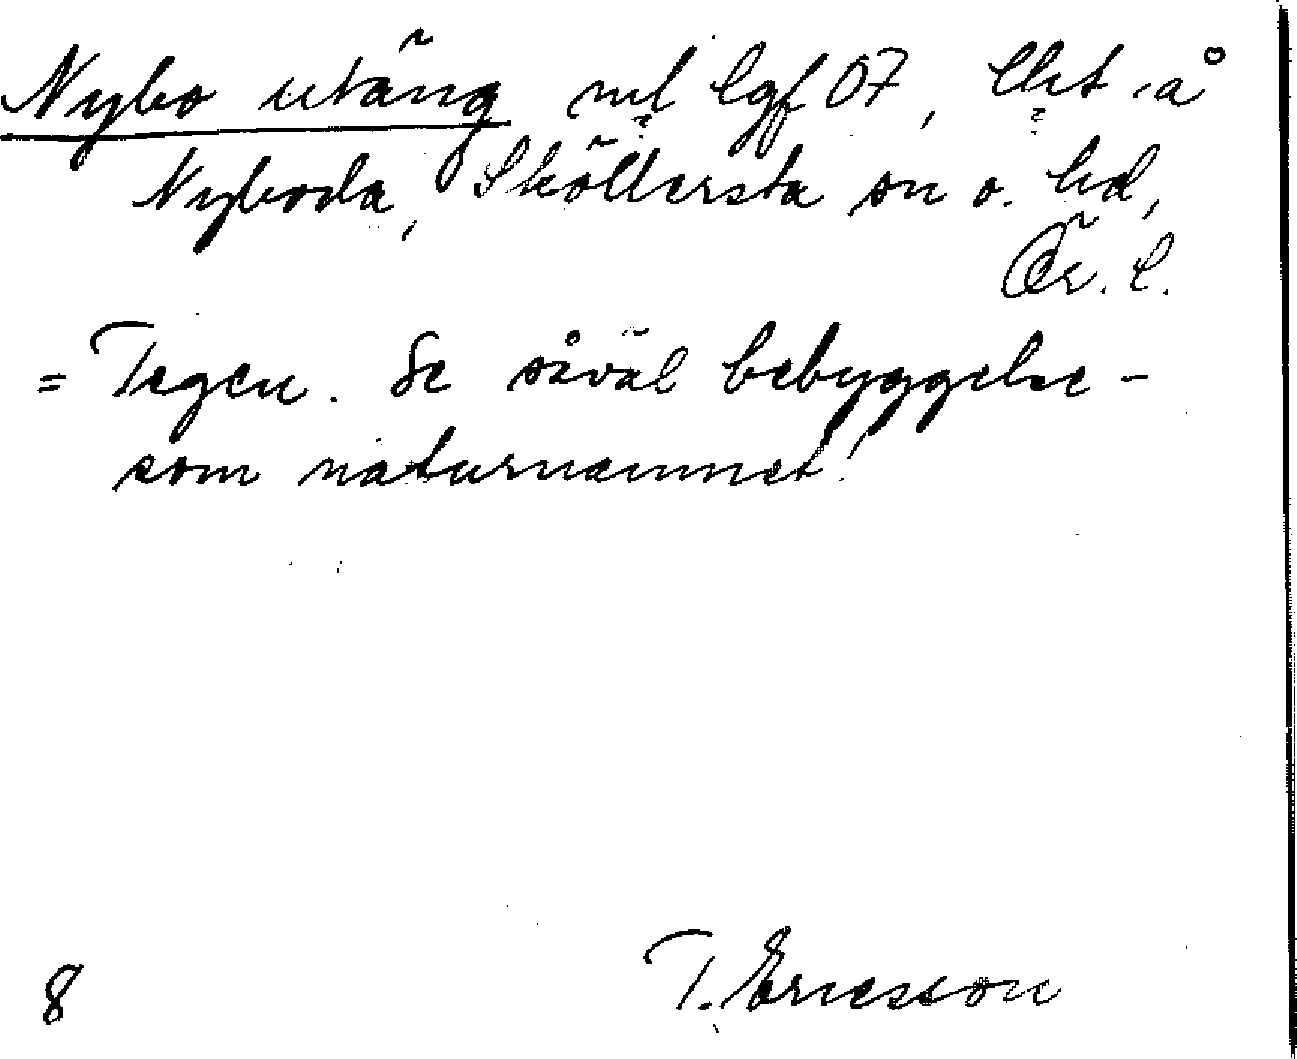 Nybo utäng ml lgf 07, Cht. å
Nyboda, Sköllersta sn o. hd,
Ör. l.
= Tegen. Se såväl bebyggelse-
som naturnamnet!
8 T. Ericsson